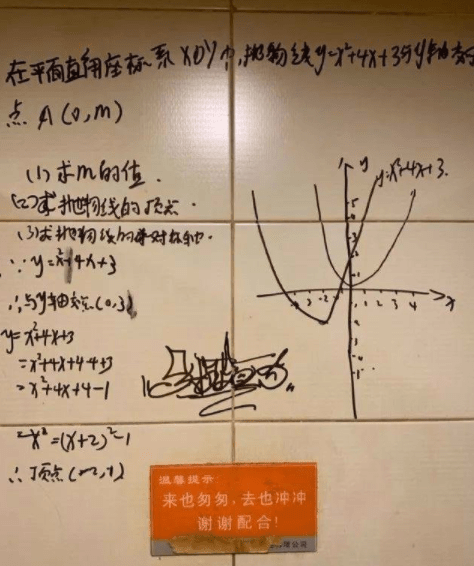 在平面直角座标系XOY中,抛物线y=x²+4x+3与y轴交于
点A(0,m)
(1)求m的值.
(2)求抛物线的顶点.
(3)求抛物线的对称轴.
∵y=x²+4x+3
∴与y轴交点(0,3)
y=x²+4x+3
=x²+4x+4-4+3
=x²+4x+4-1
=(x+2)²-1
∴顶点(-2,-1)
y
y=x²+4x+3.
x
温馨提示
来也匆匆,去也冲冲
谢谢配合!